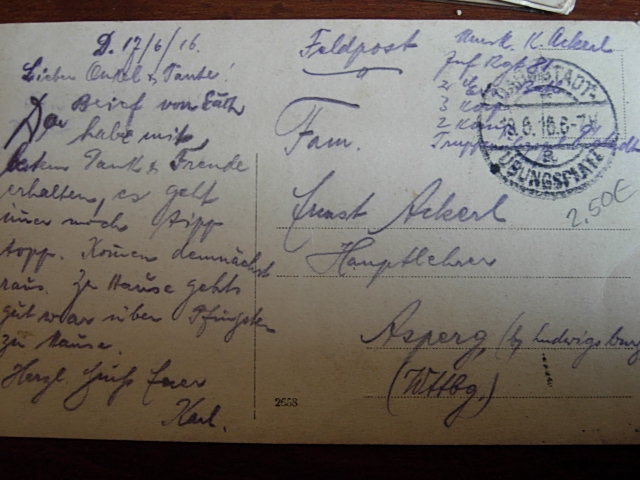 D. 17/6/16.
Lieber Onkel & Tante!
Den Brief von Käth
habe mit
bestem Dank & Freude
erhalten, es geht
immer noch tipp
topp. Komen demnächst
raus. Zu Hause gehts
gut war über Pfingsten
zu Hause.
Herzl Gruß Euer
Karl.
Feldpost
Musk. K. Ackerl
Inf Rgt
3 Korp
2 Komp
DARMSTADT
18.6.16.6-7N
ÜBUNGSPLATZ
2.50€
Fam.
Ernst Ackerl
Hauptlehrer
Asperg, (by Ludwigsburg
(Wttbg.)
2658